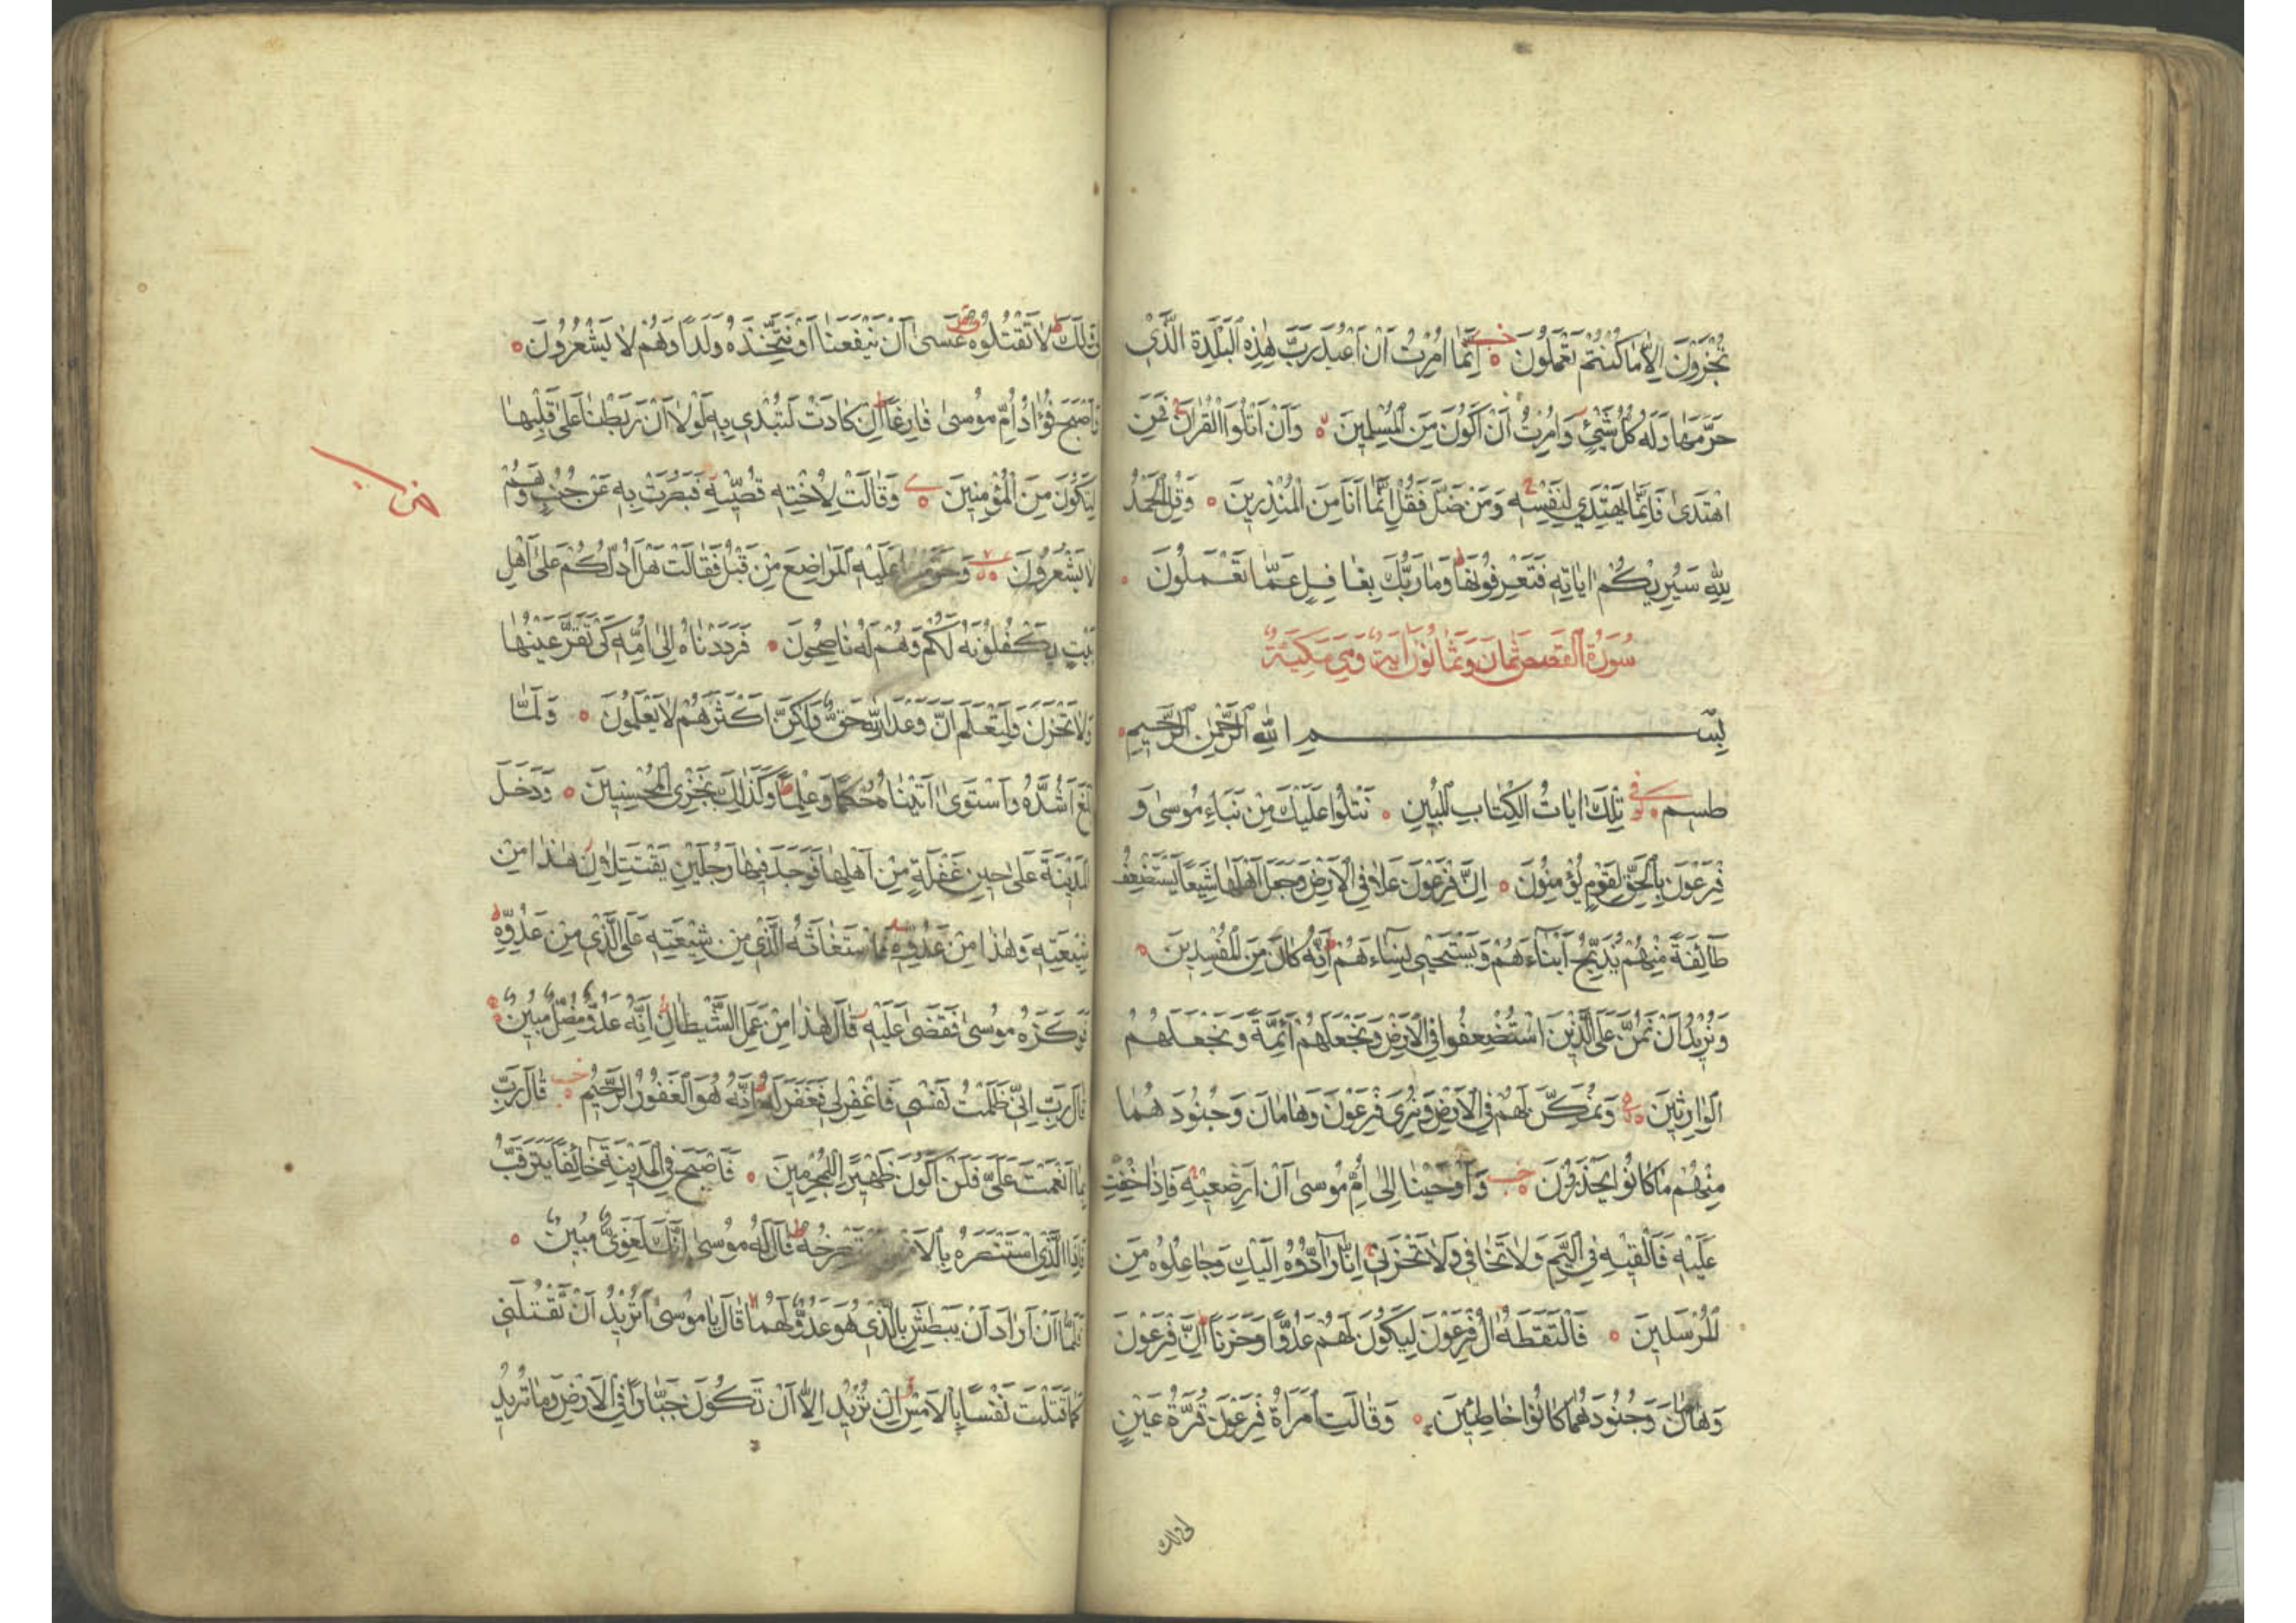 تُجْزَوْنَ اِلَّا مَا كُنْتُمْ تَعْمَلُونَ اِنَّمَا اُمِرْتُ اَنْ اَعْبُدَ رَبَّ هٰذِهِ الْبَلْدَةِ الَّذِي
حَرَّمَهَا وَلَهُ كُلُّ شَيْءٍ وَاُمِرْتُ اَنْ اَكُونَ مِنَ الْمُسْلِمِينَ وَاَنْ اَتْلُوَا الْقُرْاٰنَ فَمَنِ
اهْتَدٰى فَاِنَّمَا يَهْتَدِي لِنَفْسِهِ وَمَنْ ضَلَّ فَقُلْ اِنَّمَا اَنَا مِنَ الْمُنْذِرِينَ وَقُلِ الْحَمْدُ
لِلّٰهِ سَيُرِيكُمْ اٰيَاتِهِ فَتَعْرِفُونَهَا وَمَا رَبُّكَ بِغَافِلٍ عَمَّا تَعْمَلُونَ
سُورَةُ الْقَصَصِ ثَمَانٌ وَثَمَانُونَ اٰيَةً وَهِيَ مَكِّيَّةٌ
بِسْمِ اللّٰهِ الرَّحْمٰنِ الرَّحِيمِ
طسم تِلْكَ اٰيَاتُ الْكِتَابِ الْمُبِينِ نَتْلُوا عَلَيْكَ مِنْ نَبَاءِ مُوسٰى وَ
فِرْعَوْنَ بِالْحَقِّ لِقَوْمٍ يُؤْمِنُونَ اِنَّ فِرْعَوْنَ عَلَا فِي الْاَرْضِ وَجَعَلَ اَهْلَهَا شِيَعًا يَسْتَضْعِفُ
طَائِفَةً مِنْهُمْ يُذَبِّحُ اَبْنَاءَهُمْ وَيَسْتَحْيِي نِسَاءَهُمْ اِنَّهُ كَانَ مِنَ الْمُفْسِدِينَ
وَنُرِيدُ اَنْ نَمُنَّ عَلَى الَّذِينَ اسْتُضْعِفُوا فِي الْاَرْضِ وَنَجْعَلَهُمْ اَئِمَّةً وَنَجْعَلَهُمُ
الْوَارِثِينَ وَنُمَكِّنَ لَهُمْ فِي الْاَرْضِ وَنُرِيَ فِرْعَوْنَ وَهَامَانَ وَجُنُودَهُمَا
مِنْهُمْ مَا كَانُوا يَحْذَرُونَ وَاَوْحَيْنَا اِلٰى اُمِّ مُوسٰى اَنْ اَرْضِعِيهِ فَاِذَا خِفْتِ
عَلَيْهِ فَاَلْقِيهِ فِي الْيَمِّ وَلَا تَخَافِي وَلَا تَحْزَنِي اِنَّا رَادُّوهُ اِلَيْكِ وَجَاعِلُوهُ مِنَ
الْمُرْسَلِينَ فَالْتَقَطَهُ اٰلُ فِرْعَوْنَ لِيَكُونَ لَهُمْ عَدُوًّا وَحَزَنًا اِنَّ فِرْعَوْنَ
وَهَامَانَ وَجُنُودَهُمَا كَانُوا خَاطِئِينَ وَقَالَتِ امْرَاَةُ فِرْعَوْنَ قُرَّةُ عَيْنٍ
لِي وَلَكَ
لِي وَلَكَ لَا تَقْتُلُوهُ عَسٰى اَنْ يَنْفَعَنَا اَوْ نَتَّخِذَهُ وَلَدًا وَهُمْ لَا يَشْعُرُونَ
وَاَصْبَحَ فُؤَادُ اُمِّ مُوسٰى فَارِغًا اِنْ كَادَتْ لَتُبْدِي بِهِ لَوْلَا اَنْ رَبَطْنَا عَلٰى قَلْبِهَا
لِتَكُونَ مِنَ الْمُؤْمِنِينَ وَقَالَتْ لِاُخْتِهِ قُصِّيهِ فَبَصُرَتْ بِهِ عَنْ جُنُبٍ وَهُمْ
لَا يَشْعُرُونَ وَحَرَّمْنَا عَلَيْهِ الْمَرَاضِعَ مِنْ قَبْلُ فَقَالَتْ هَلْ اَدُلُّكُمْ عَلٰى اَهْلِ
بَيْتٍ يَكْفُلُونَهُ لَكُمْ وَهُمْ لَهُ نَاصِحُونَ فَرَدَدْنَاهُ اِلٰى اُمِّهِ كَيْ تَقَرَّ عَيْنُهَا
وَلَا تَحْزَنَ وَلِتَعْلَمَ اَنَّ وَعْدَ اللّٰهِ حَقٌّ وَلٰكِنَّ اَكْثَرَهُمْ لَا يَعْلَمُونَ وَلَمَّا
بَلَغَ اَشُدَّهُ وَاسْتَوٰى اٰتَيْنَاهُ حُكْمًا وَعِلْمًا وَكَذٰلِكَ نَجْزِي الْمُحْسِنِينَ وَدَخَلَ
الْمَدِينَةَ عَلٰى حِينِ غَفْلَةٍ مِنْ اَهْلِهَا فَوَجَدَ فِيهَا رَجُلَيْنِ يَقْتَتِلَانِ هٰذَا مِنْ
شِيعَتِهِ وَهٰذَا مِنْ عَدُوِّهِ فَاسْتَغَاثَهُ الَّذِي مِنْ شِيعَتِهِ عَلَى الَّذِي مِنْ عَدُوِّهِ
فَوَكَزَهُ مُوسٰى فَقَضٰى عَلَيْهِ قَالَ هٰذَا مِنْ عَمَلِ الشَّيْطَانِ اِنَّهُ عَدُوٌّ مُضِلٌّ مُبِينٌ
قَالَ رَبِّ اِنِّي ظَلَمْتُ نَفْسِي فَاغْفِرْ لِي فَغَفَرَ لَهُ اِنَّهُ هُوَ الْغَفُورُ الرَّحِيمُ قَالَ رَبِّ
بِمَا اَنْعَمْتَ عَلَيَّ فَلَنْ اَكُونَ ظَهِيرًا لِلْمُجْرِمِينَ فَاَصْبَحَ فِي الْمَدِينَةِ خَائِفًا يَتَرَقَّبُ
فَاِذَا الَّذِي اسْتَنْصَرَهُ بِالْاَمْسِ يَسْتَصْرِخُهُ قَالَ لَهُ مُوسٰى اِنَّكَ لَغَوِيٌّ مُبِينٌ
فَلَمَّا اَنْ اَرَادَ اَنْ يَبْطِشَ بِالَّذِي هُوَ عَدُوٌّ لَهُمَا قَالَ يَا مُوسٰى اَتُرِيدُ اَنْ تَقْتُلَنِي
كَمَا قَتَلْتَ نَفْسًا بِالْاَمْسِ اِنْ تُرِيدُ اِلَّا اَنْ تَكُونَ جَبَّارًا فِي الْاَرْضِ وَمَا تُرِيدُ